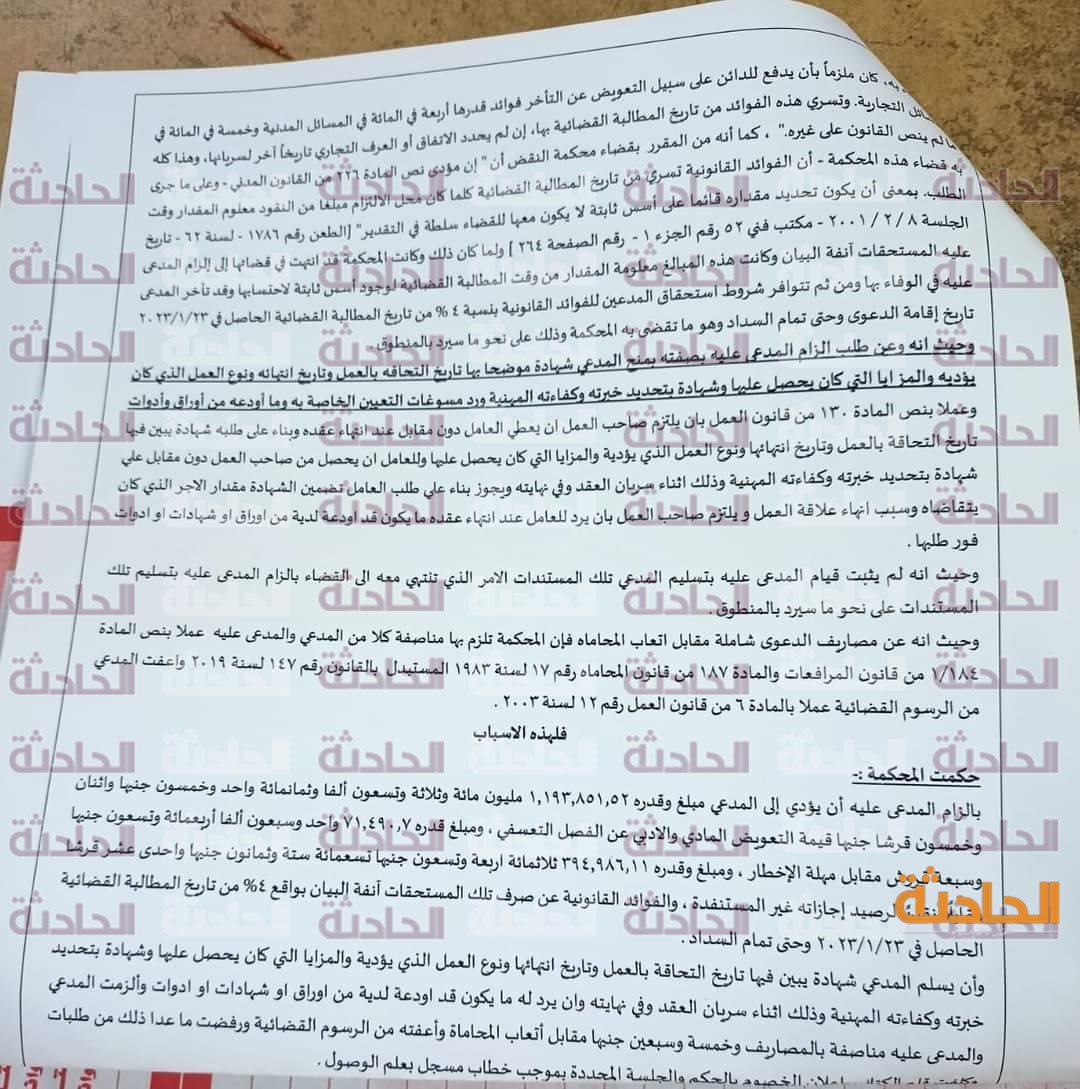 به، كان ملزماً بأن يدفع للدائن على سبيل التعويض عن التأخر فوائد قدرها أربعة في المائة في المسائل المدنية وخمسة في المائة في
ائل التجارية. وتسري هذه الفوائد من تاريخ المطالبة القضائية بها، إن لم يحدد الاتفاق أو العرف التجاري تاريخاً آخر لسريانها، وهذا كله
ما لم ينص القانون على غيره." ، كما أنه من المقرر بقضاء محكمة النقض أن" إن مؤدى نص المادة ٢٢٦ من القانون المدني - وعلى ما جرى
به قضاء هذه المحكمة - أن الفوائد القانونية تسري من تاريخ المطالبة القضائية كلما كان محل الالتزام مبلغا من النقود معلوم المقدار وقت
الطلب. بمعنى أن يكون تحديد مقداره قائما على أسس ثابتة لا يكون معها للقضاء سلطة في التقدير" [الطعن رقم ١٧٨٦ - لسنة ٦٢ - تاريخ
الجلسة ٨ / ٢ / ٢٠٠١ - مكتب فني ٥٢ رقم الجزء ١ - رقم الصفحة ٢٦٤ ] ولما كان ذلك وكانت المحكمة قد انتهت في قضائها إلى إلزام المدعى
عليه المستحقات آنفة البيان وكانت هذه المبالغ معلومة المقدار من وقت المطالبة القضائية لوجود أسس ثابتة لاحتسابها وقد تأخر المدعى
عليه في الوفاء بها ومن ثم تتوافر شروط استحقاق المدعين للفوائد القانونية بنسبة ٤ % من تاريخ المطالبة القضائية الحاصل في ٢٠٢٣/١/٢٣
تاريخ إقامة الدعوى وحتى تمام السداد وهو ما تقضى به المحكمة وذلك على نحو ما سيرد بالمنطوق .
وحيث انه وعن طلب الزام المدعى عليه بصفته بمنح المدعي شهادة موضحا بها تاريخ التحاقه بالعمل وتاريخ انتهائه ونوع العمل الذي كان
يؤديه والمزايا التي كان يحصل عليها وشهادة بتحديد خبرته وكفاءته المهنية ورد مسوغات التعيين الخاصة به وما أودعه من أوراق وأدوات
وعملا بنص المادة ١٣٠ من قانون العمل بان يلتزم صاحب العمل ان يعطي العامل دون مقابل عند انتهاء عقده وبناء على طلبه شهادة يبين فيها
تاريخ التحاقة بالعمل وتاريخ انتهائها ونوع العمل الذي يؤدية والمزايا التي كان يحصل عليها وللعامل ان يحصل من صاحب العمل دون مقابل علي
شهادة بتحديد خبرته وكفاءته المهنية وذلك اثناء سريان العقد وفي نهايته ويجوز بناء علي طلب العامل تضمين الشهادة مقدار الاجر الذي كان
يتقاضاه وسبب انهاء علاقة العمل و يلتزم صاحب العمل بان يرد للعامل عند انتهاء عقده ما يكون قد اودعة لدية من اوراق او شهادات او ادوات
فور طلبها .
وحيث انه لم يثبت قيام المدعى عليه بتسليم المدعي تلك المستندات الامر الذي تنتهي معه الى القضاء بالزام المدعى عليه بتسليم تلك
المستندات على نحو ما سيرد بالمنطوق .
وحيث انه عن مصاريف الدعوى شاملة مقابل اتعاب المحاماه فإن المحكمة تلزم بها مناصفة كلا من المدعي والمدعى عليه عملا بنص المادة
١/١٨٤ من قانون المرافعات والمادة ١٨٧ من قانون المحاماه رقم ١٧ لسنة ١٩٨٣ المستبدل بالقانون رقم ١٤٧ لسنة ٢٠١٩ واعفت المدعي
من الرسوم القضائية عملا بالمادة ٦ من قانون العمل رقم ١٢ لسنة ٢٠٠٣ .
فلهذه الاسباب
حكمت المحكمة :-
بالزام المدعى عليه أن يؤدي إلى المدعي مبلغ وقدره ١,١٩٣,٨٥١,٥٢ مليون مائة وثلاثة وتسعون ألفا وثمانمائة واحد وخمسون جنيها واثنان
وخمسون قرشا جنيها قيمة التعويض المادي والادبي عن الفصل التعسفي ، ومبلغ قدره ٧١,٤٩٠,٧ واحد وسبعون ألفا أربعمائة وتسعون جنيها
وسبعة قروش مقابل مهلة الإخطار ، ومبلغ وقدره ٣٩٤,٩٨٦,١١ ثلاثمائة اربعة وتسعون جنيها تسعمائة ستة وثمانون جنيها واحدى عشر قرشا
لرصيد إجازاته غير المستنفدة ، والفوائد القانونية عن صرف تلك المستحقات آنفة البيان بواقع ٤% من تاريخ المطالبة القضائية
الحاصل في ٢٠٢٣/١/٢٣ وحتى تمام السداد .
وأن يسلم المدعي شهادة يبين فيها تاريخ التحاقة بالعمل وتاريخ انتهائها ونوع العمل الذي يؤدية والمزايا التي كان يحصل عليها وشهادة بتحديد
خبرته وكفاءته المهنية وذلك اثناء سريان العقد وفي نهايته وان يرد له ما يكون قد اودعة لدية من اوراق او شهادات او ادوات وألزمت المدعي
والمدعى عليه مناصفة بالمصاريف وخمسة وسبعين جنيها مقابل أتعاب المحاماة وأعفته من الرسوم القضائية ورفضت ما عدا ذلك من طلبات
الخصوم بالحكم والجلسة المحددة بموجب خطاب مسجل بعلم الوصول .
الحادثة